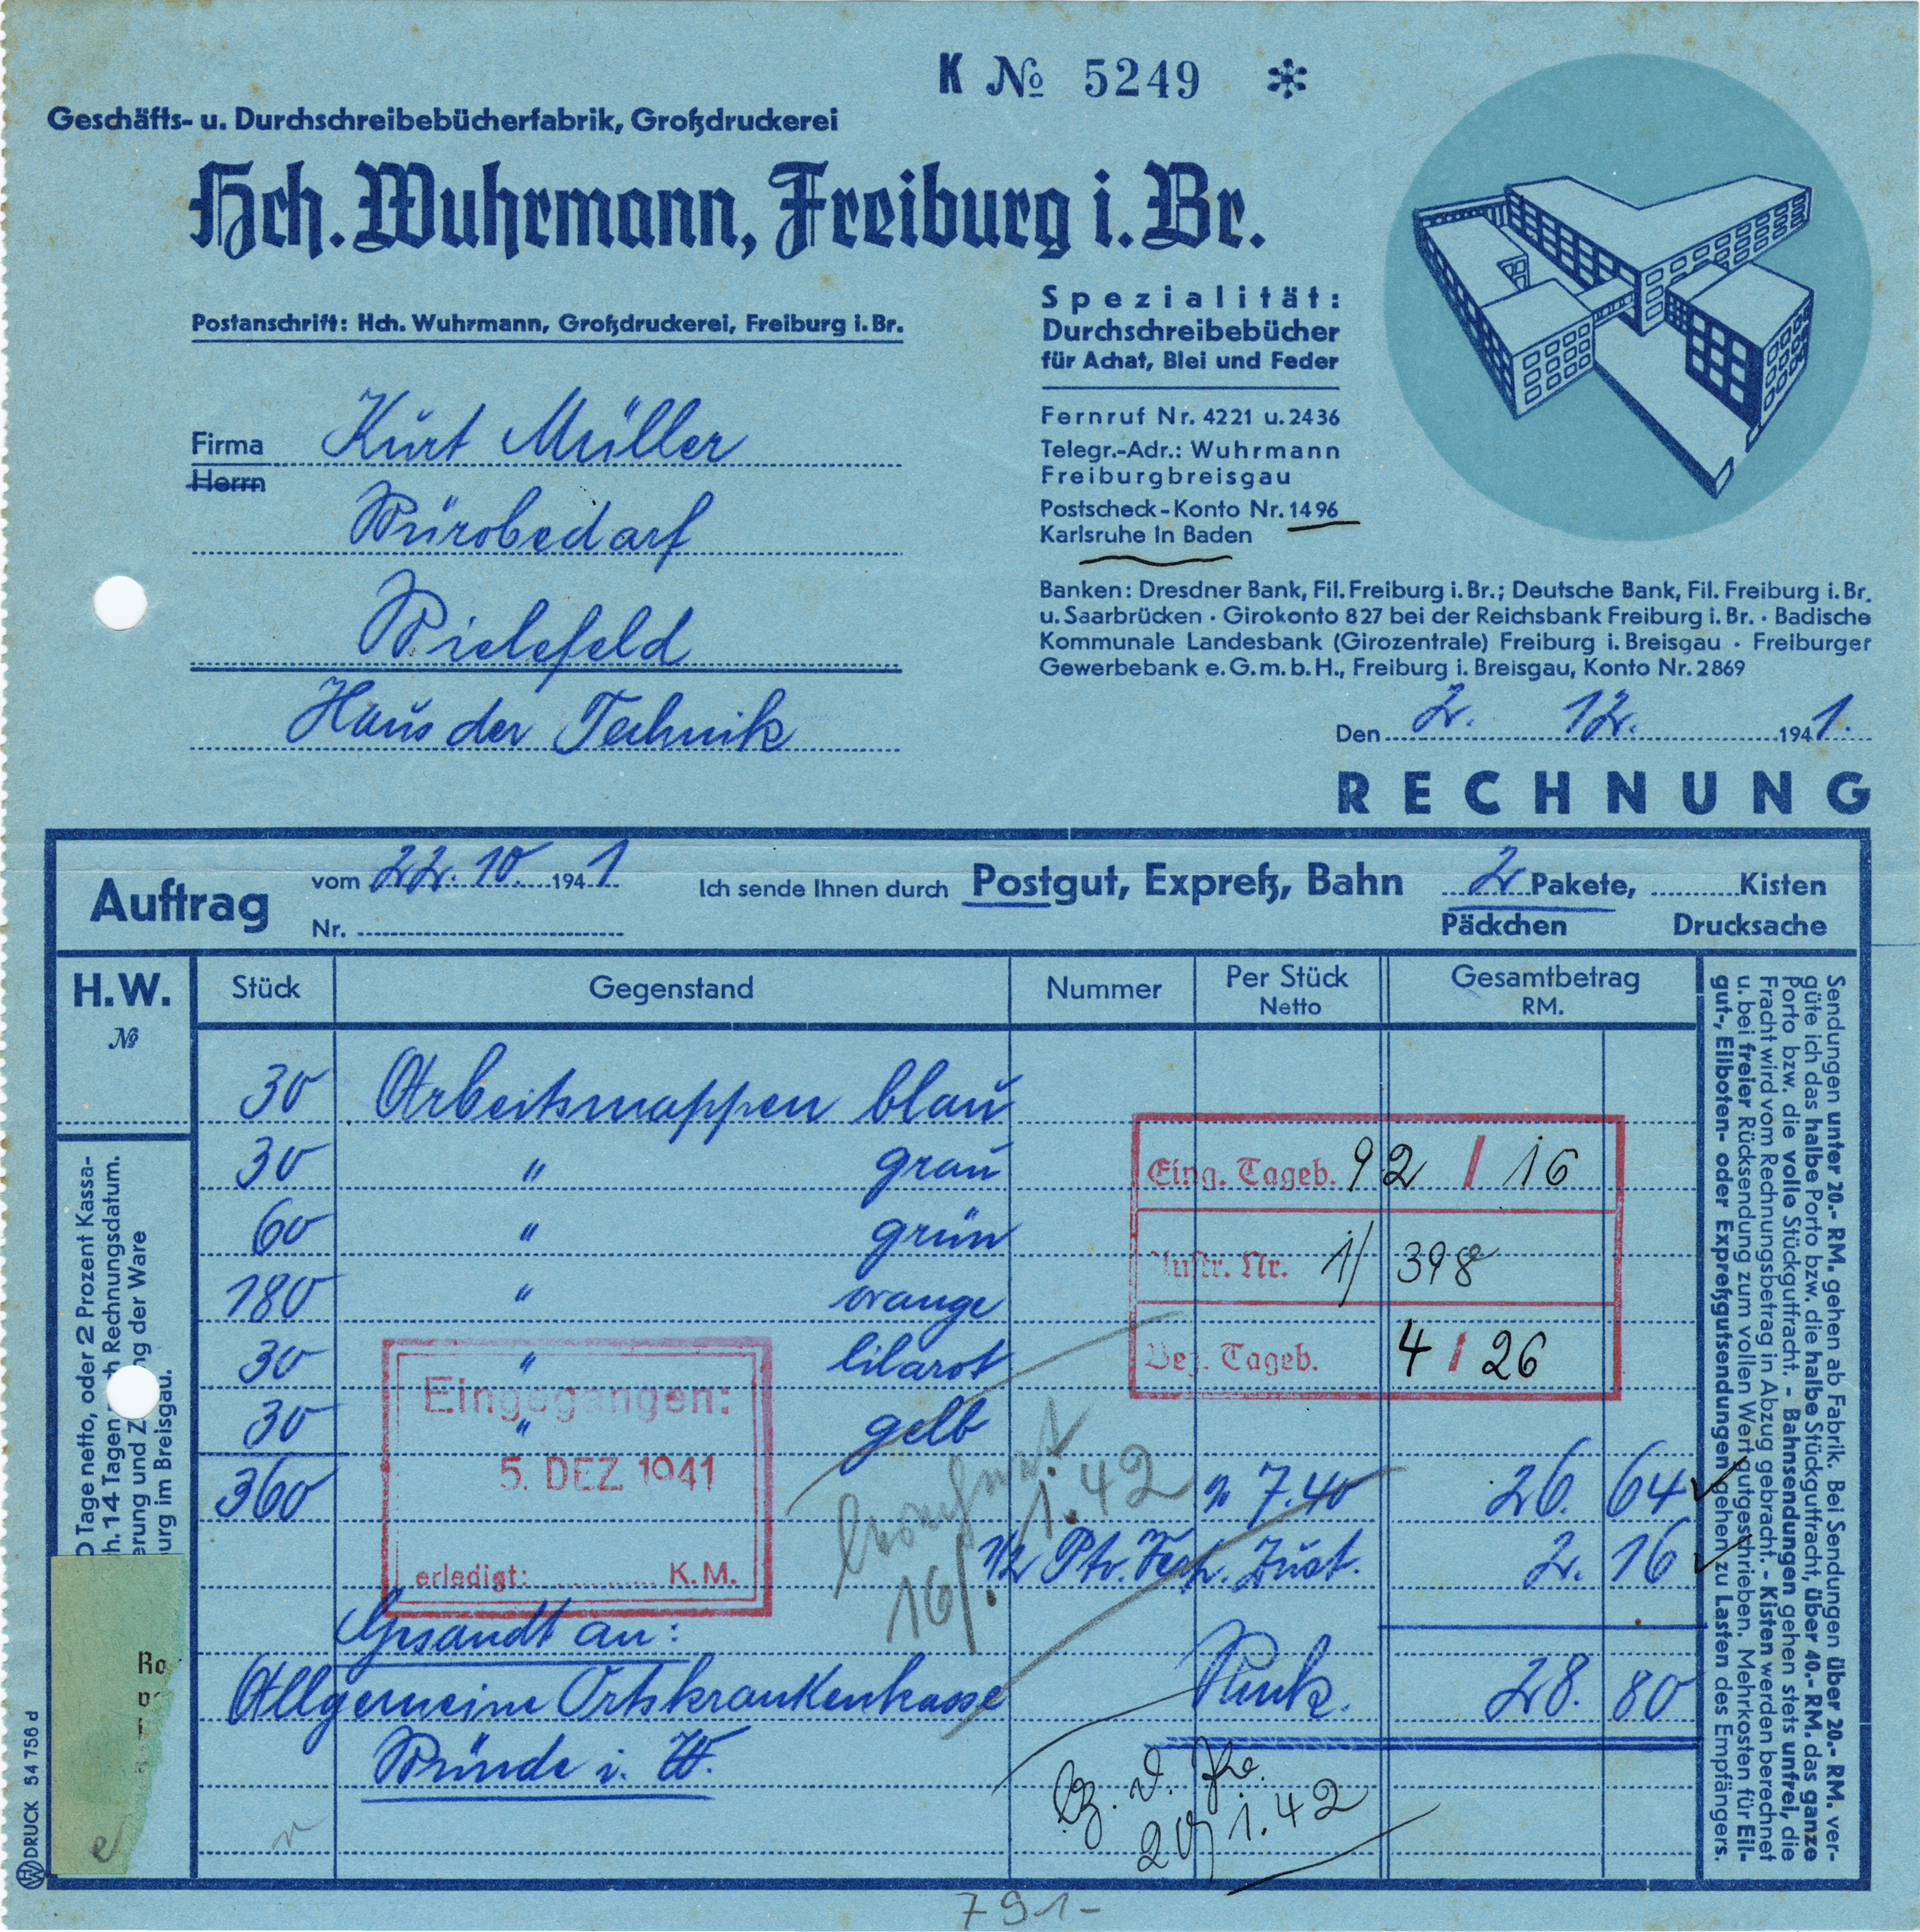 K № 5249 *
Geschäfts- u. Durchschreibebücherfabrik, Großdruckerei
Hch. Wuhrmann, Freiburg i. Br.
Postanschrift: Hch. Wuhrmann, Großdruckerei, Freiburg i. Br.
Spezialität:
Durchschreibebücher
für Achat, Blei und Feder
Fernruf Nr. 4221 u. 2436
Telegr.-Adr.: Wuhrmann
Freiburgbreisgau
Postscheck-Konto Nr. 1496
Karlsruhe in Baden
Banken: Dresdner Bank, Fil. Freiburg i. Br.; Deutsche Bank, Fil. Freiburg i. Br.
u. Saarbrücken · Girokonto 827 bei der Reichsbank Freiburg i. Br. · Badische
Kommunale Landesbank (Girozentrale) Freiburg i. Breisgau · Freiburger
Gewerbebank e. G. m. b. H., Freiburg i. Breisgau, Konto Nr. 2869
Firma Kurt Müller
Herrn
Bürobedarf
Bielefeld
Haus der Technik
Den 2. 12. 1941.
RECHNUNG
Auftrag vom 22. 10. 1941 Ich sende Ihnen durch Postgut, Expreß, Bahn 2 Pakete, Kisten
Nr. Päckchen Drucksache
H.W. Stück Gegenstand Nummer Per Stück Netto Gesamtbetrag RM.
№
30 Arbeitsmappen blau
30 " grau
60 " grün
180 " orange
30 " lilarot
30 " gelb
360 7.40 26. 64
1/2 Zust. 2. 16
Gesandt an:
Allgemeine Ortskrankenkasse 28. 80
Bünde i. W.
Eing. Tageb. 92 / 16
Nr. 1/ 398
Bez. Tageb. 4 / 26
Eingegangen:
5. DEZ 1941
erledigt: K. M.
1.42
16/.
20/1.42
791-
Tage netto, oder 2 Prozent Kassa-
h. 14 Tagen Rechnungsdatum.
erung und Z ng der Ware
urg im Breisgau.
Sendungen unter 20.- RM. gehen ab Fabrik. Bei Sendungen über 20.- RM. ver-
güte ich das halbe Porto bzw. die halbe Stückgutfracht, über 40.- RM. das ganze
Porto bzw. die volle Stückgutfracht. - Bahnsendungen gehen stets unfrei, die
Fracht wird vom Rechnungsbetrag in Abzug gebracht. - Kisten werden berechnet
u. bei freier Rücksendung zum vollen Wert gutgeschrieben. Mehrkosten für Eil-
gut-, Eilboten- oder Expreßgutsendungen gehen zu Lasten des Empfängers.
DRUCK 54 756 d